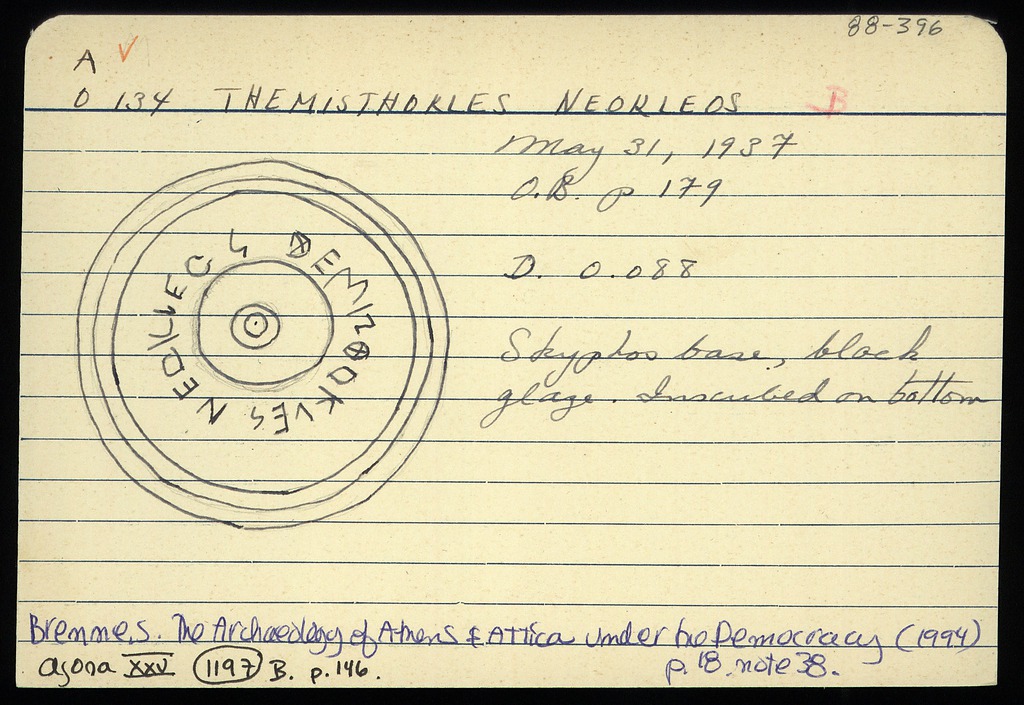 88-396
A ✓
O 134 THEMISTHOKLES NEOKLEOS B
May 31, 1937
O.B. p 179
D. 0.088
Skyphos base, black
glaze. Inscribed on bottom
Bremmes. The Archaeology of Athens & Attica under the Democracy (1994)
p. 18 note 38.
Agora XXV 1197 B. p. 146.